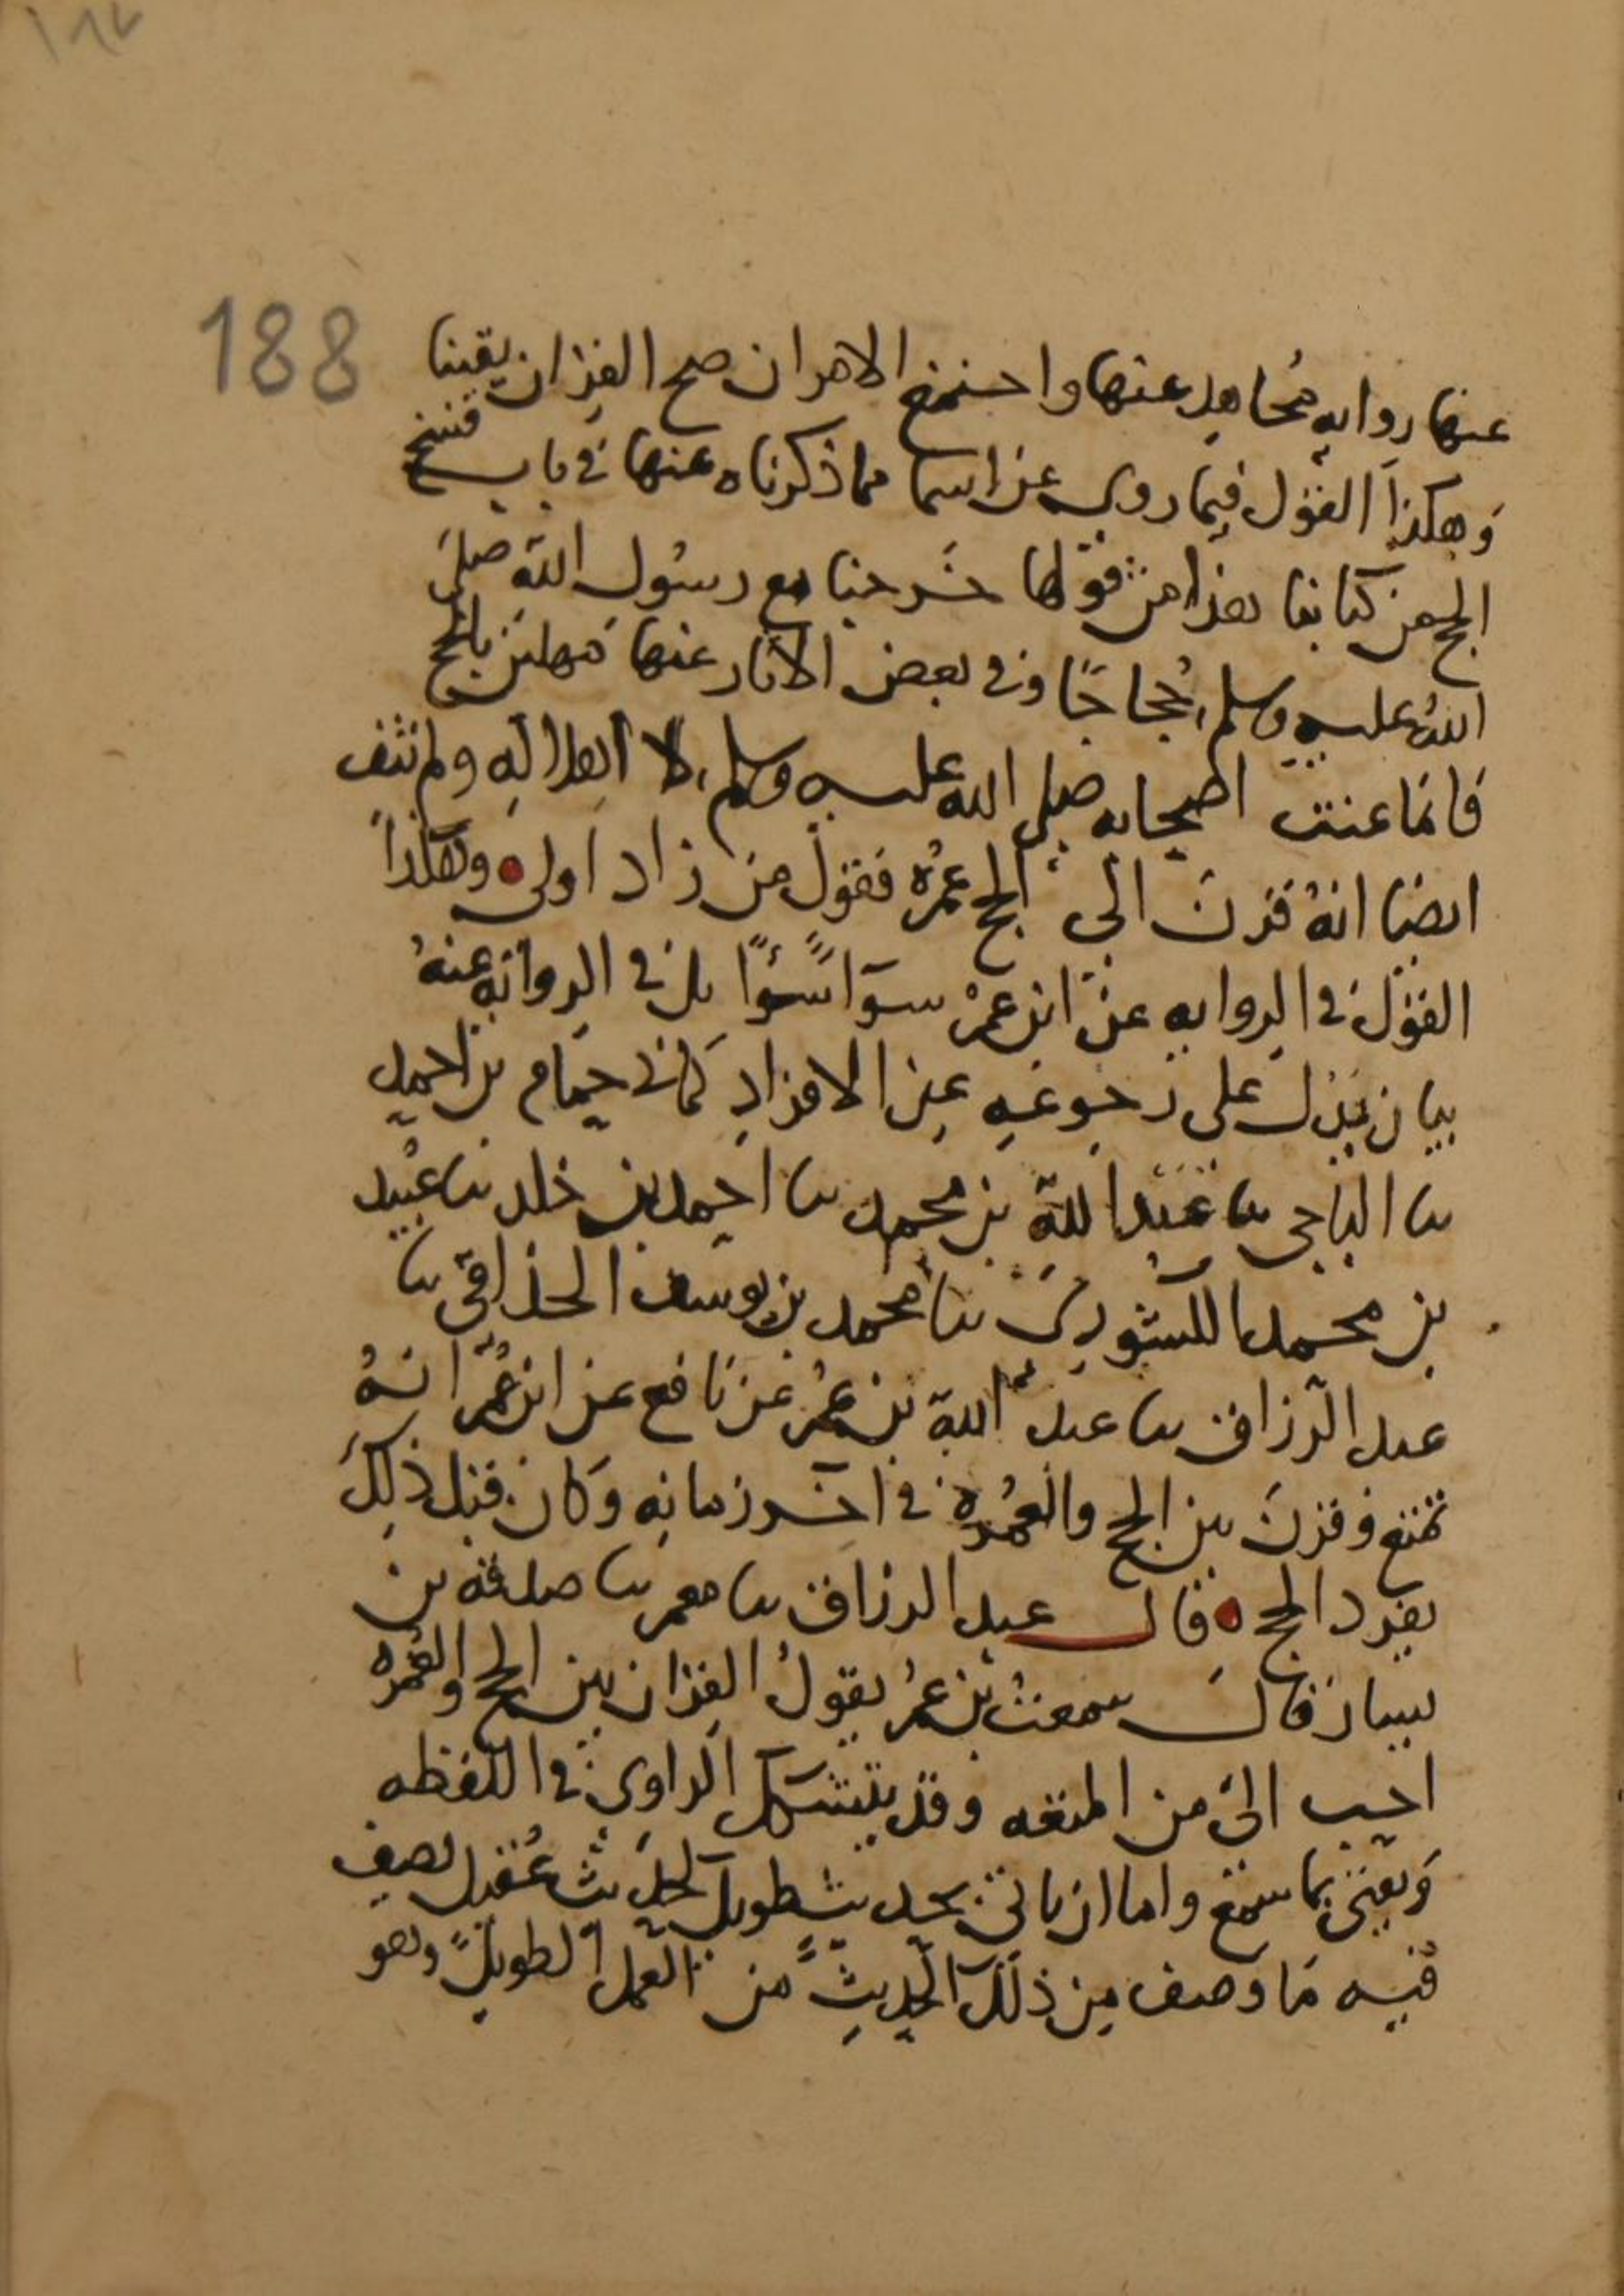 ١٨٧
188
عنها رواية مجاهد عنها واجتمع الامران صح القران يقينا
وهكذا القول فيما روي عن اسما مما ذكرناه عنها في باب فسخ
الحج من كتابنا هذا من قولها خرجنا مع رسول الله صلى
الله عليه وسلم حجاجًا وفي بعض الاثار عنها مهلين بالحج
فانما عنت اصحابه صلى الله عليه وسلم لا اهلاله ولم تنف
ايضا انه قرن الى الحج عمره فقول من زاد اولى وهكذا
القول في الروايه عن ابن عمر سوآ سوًا بل في الروايه عنه
بيان يدل على رجوعه عن الافراد كما نا حمام بن احمد
نا الباجي نا عبد الله بن محمد نا احمد بن خلد نا عبيد
بن محمد الكشوري نا محمد بن يوسف الحذاقي نا
عبد الرزاق نا عبد الله بن عمر عن نافع عن ابن عمر انه
تمتع وقرن بين الحج والعمره في اخر زمانه وكان قبل ذلك
يفرد الحج قال عبد الرزاق نا معمر نا صدقه بن
يسار قال سمعت بن عمر يقول القران بين الحج والعمره
احب الي من المتعه وقد يتشكك الراوي في اللفظه
ويعنى بما سمع واما ان ياتي بحديث طويل لحديث عقيل يصف
فيه ما وصف من ذلك الحديث من العمل الطويل وهو